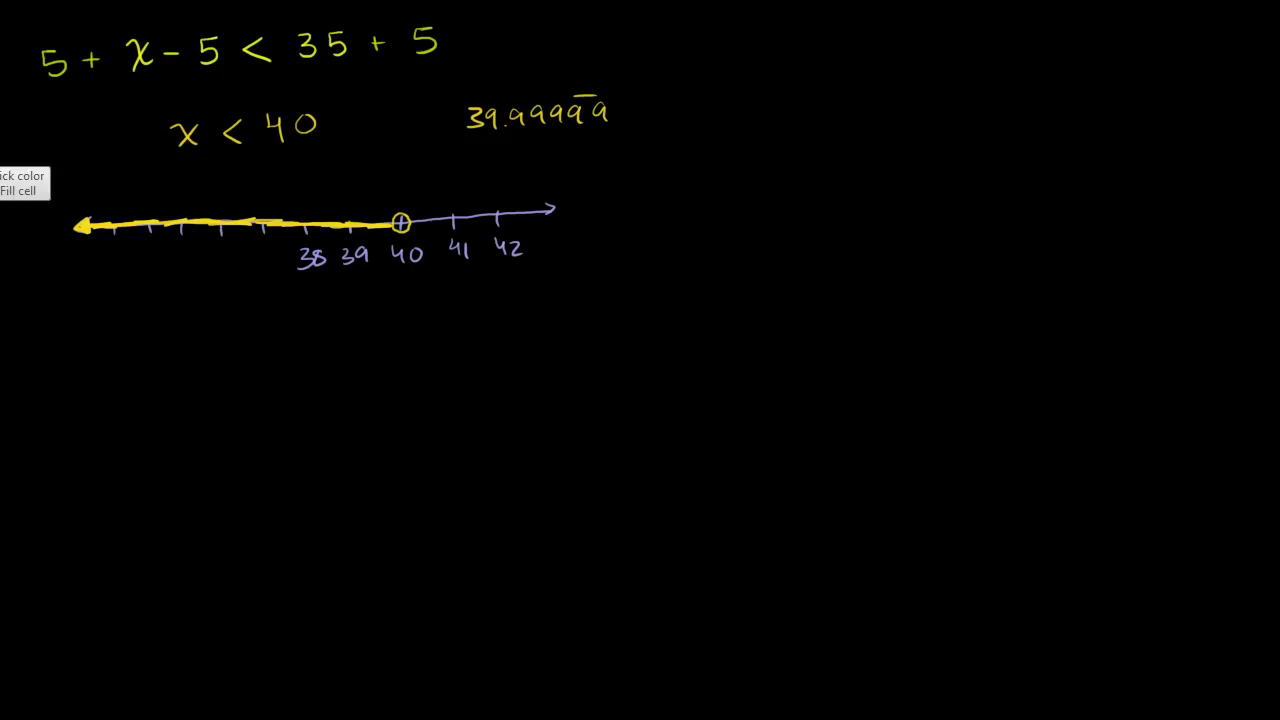 5 + x - 5 < 35 + 5
x < 40
39.99999̅9
ick color
Fill cell
38 39 40 41 42